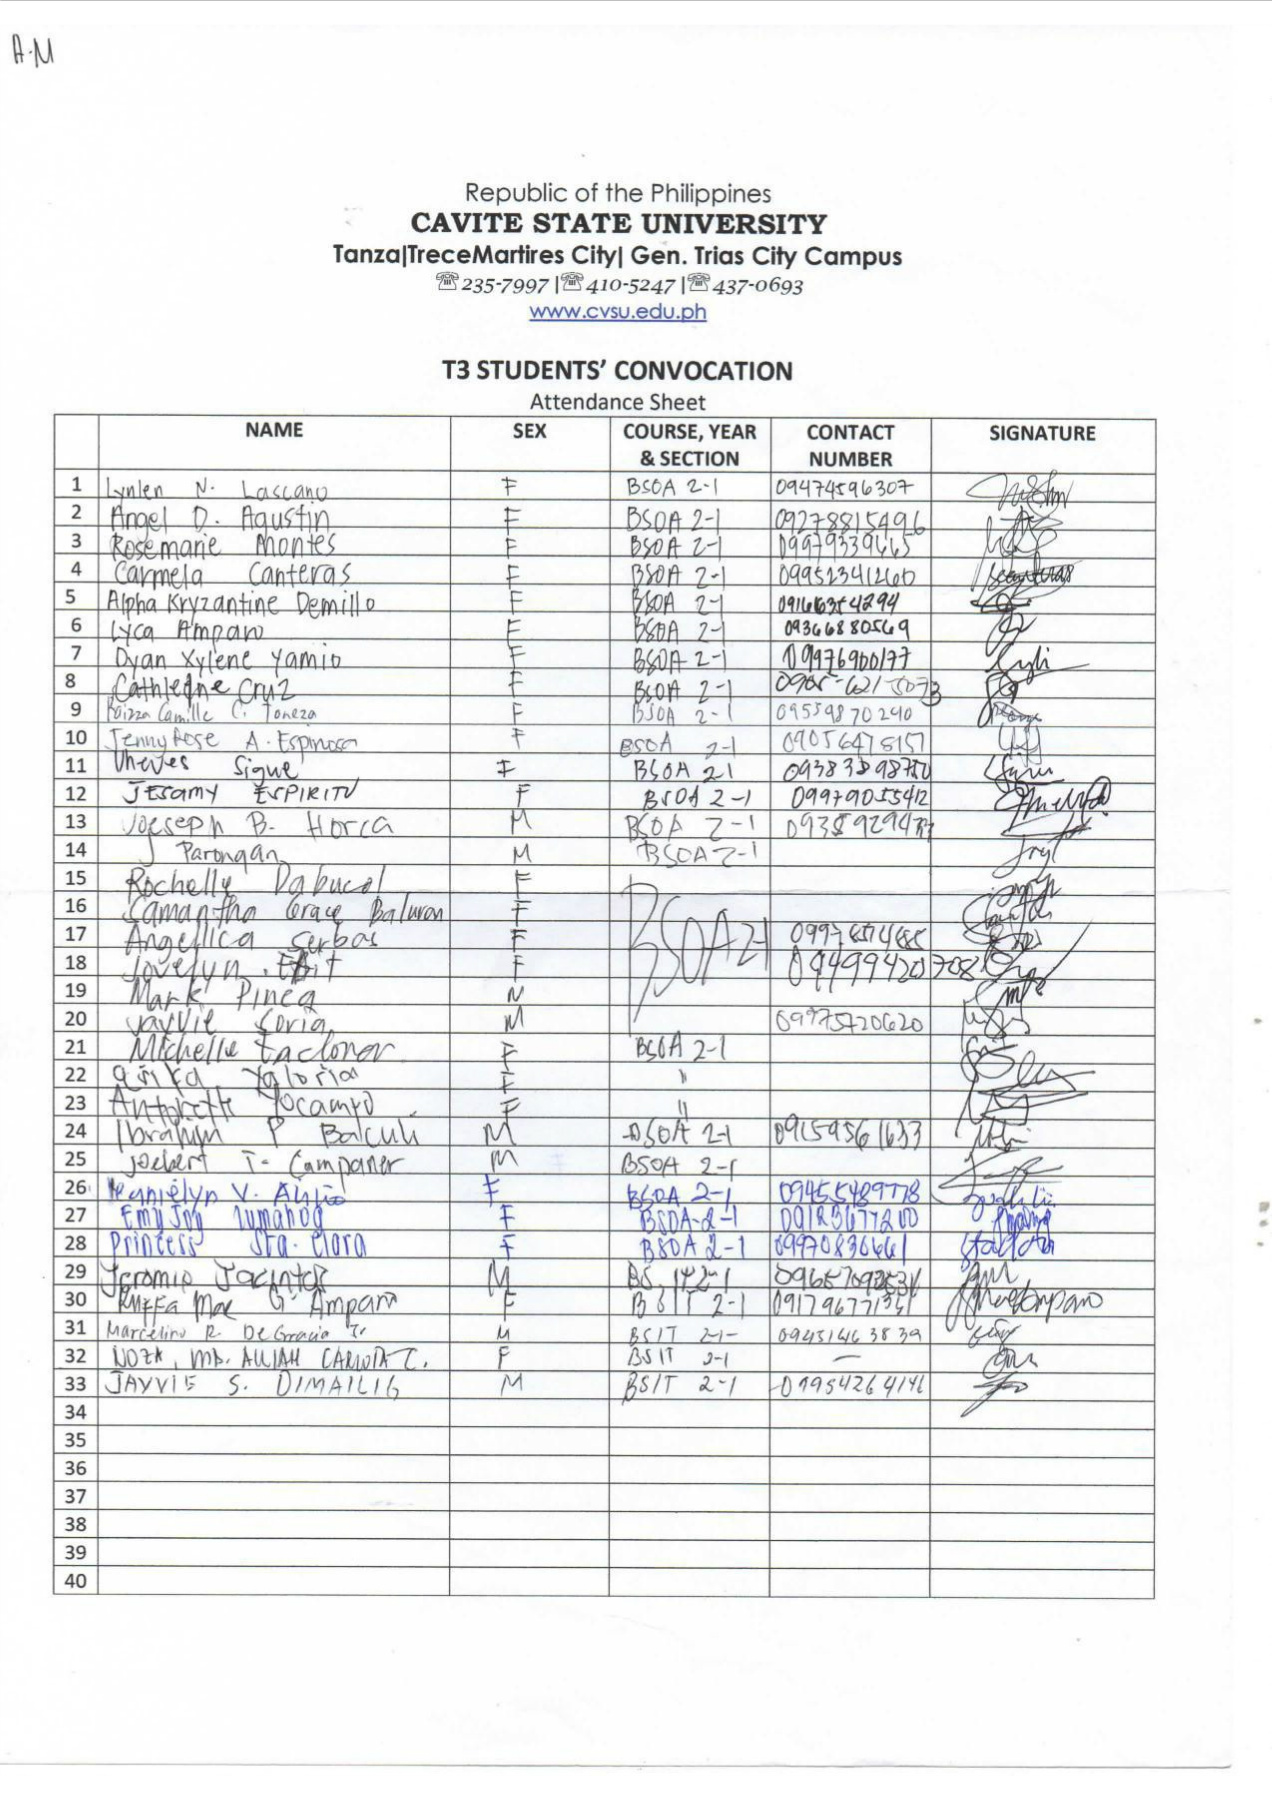 A.M
Republic of the Philippines
CAVITE STATE UNIVERSITY
Tanza|TreceMartires City| Gen. Trias City Campus
☏235-7997 |☏410-5247 |☏437-0693
www.cvsu.edu.ph
T3 STUDENTS' CONVOCATION
Attendance Sheet
NAME SEX COURSE, YEAR & SECTION CONTACT NUMBER SIGNATURE
1 Lynlen N. Lascano F BSOA 2-1 09474596307
2 Angel D. Agustin F BSOA 2-1 09278815496
3 Rosemarie Montes F BSOA 2-1 09979339665
4 Carmela Canteras F BSOA 2-1 09952341260
5 Alpha Kryzantine Demillo F BSOA 2-1
6 Lyca Amparo F BSOA 2-1 09366880569
7 Dyan Xylene Yamio F BSOA 2-1 09976900177
8 Cathleene Cruz F BSOA 2-1
9 Camille C. Toneza F BSOA 2-1 09559870240
10 Jenny Rose A. Espinosa F BSOA 2-1 09056478157
11 Sigue F BSOA 2-1
12 Jesamy ESPIRITU F BSOA 2-1 09979055412
13 Joeseph B. Horca M BSOA 2-1
14 J Parongan M BSOA 2-1
15 Rochelly Dabucol F
16 Samantha Grace Baluran F
17 Angellica Serbas F BSOA 2-1
18 Jovelyn F 09499420708
19 Mark Pineq M
20 Jayvie Soria M 09975720620
21 Michelle Tacloner F BSOA 2-1
22 Yaloria F "
23 Antonette Yocampo F "
24 Ibrahim P Balculi M BSOA 2-1 09159561633
25 Joebert T. Campaner M BSOA 2-1
26 V. F BSOA 2-1 09455489778
27 Emy Joy Lumanog F BSOA-2-1 09123677200
28 Princess Sta. Clara F BSOA 2-1 09970830661
29 Jeromie Jacintos M 2-1
30 Mae G. Amparo F BSIT 2-1
31 Marcelino R. De Gracia Jr. M BSIT 2-1- 09451463839
32 NOZA, MA. CARLOTA C. F BSIT 2-1 —
33 JAYVIE S. DIMAILIG M BSIT 2-1 09954264146
34
35
36
37
38
39
40